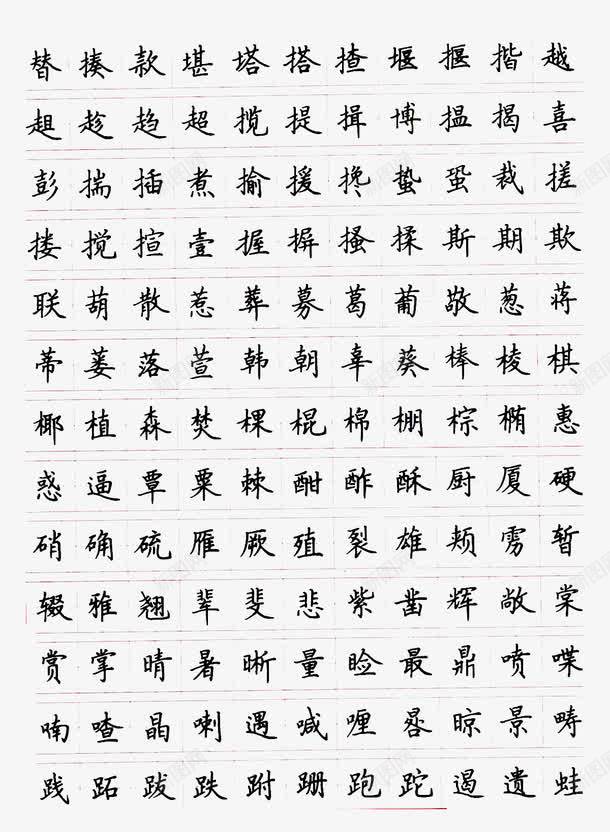 替揍款堪塔搭揸堰揠揩越
趄趁趋超揽提揖博揾揭喜
彭揣插煮揄援搀蛰蛩裁搓
搂搅揎壹握摒搔揉斯期欺
联葫散惹葬募葛葡敬葱蒋
蒂蒌落萱韩朝辜葵棒棱棋
椰植森焚棵棍棉棚棕椭惠
惑逼覃粟棘酣酢酥厨厦硬
硝确硫雁厥殖裂雄颊雳暂
辍雅翘辈斐悲紫凿辉敞棠
赏掌晴暑晰量睑最鼎喷喋
喃喳晶喇遇喊喱晷晾景畴
践跖跋跌跗跚跑跎遏遗蛙